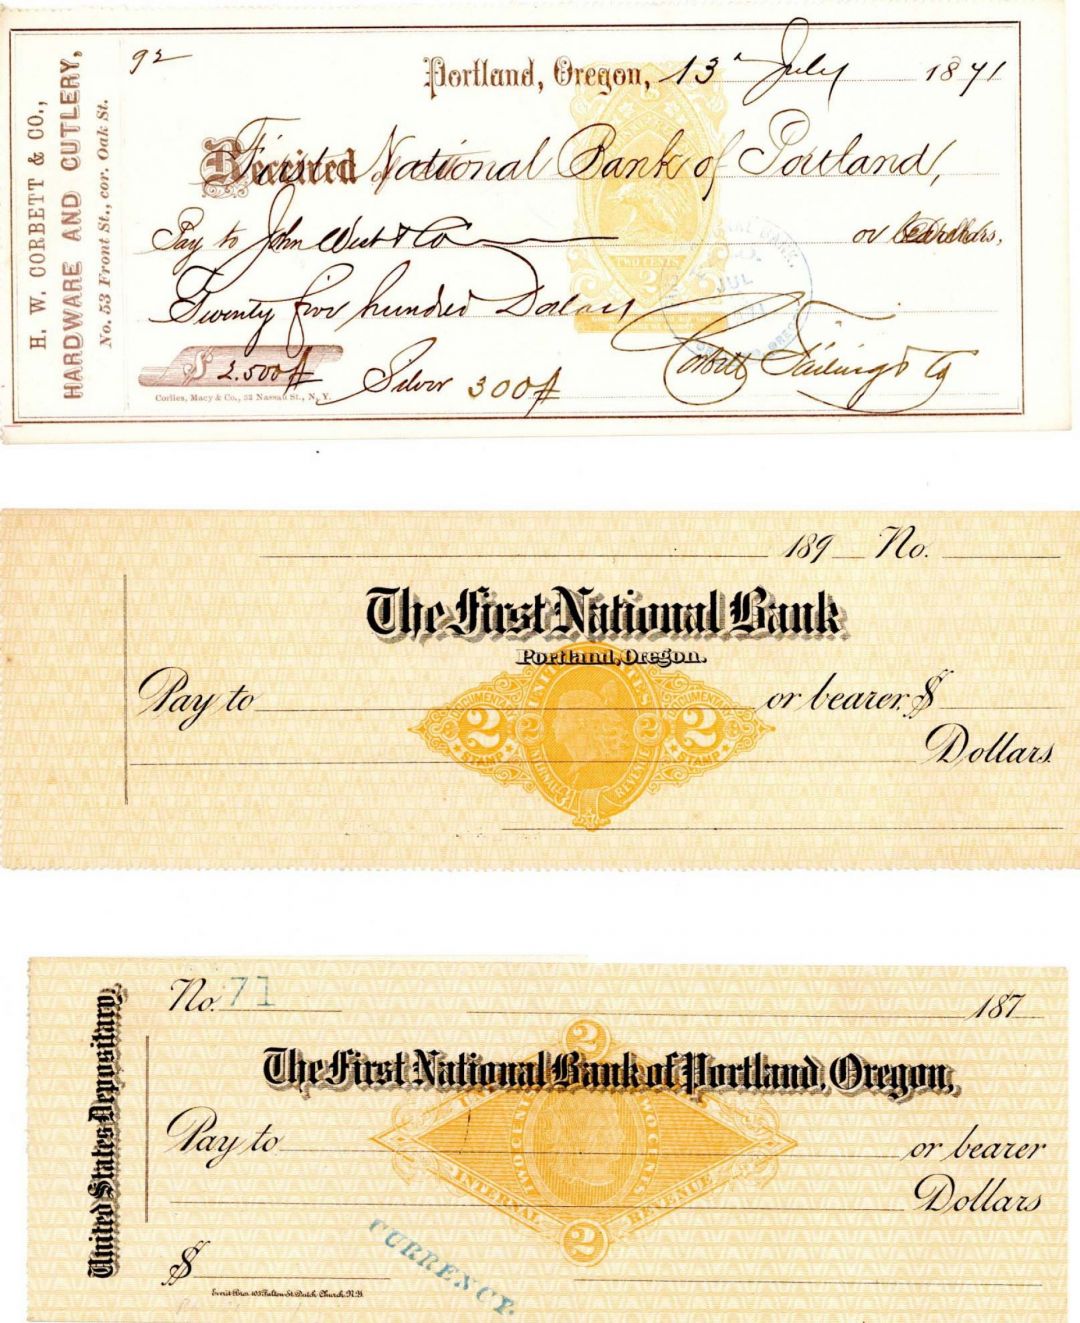 H. W. CORBETT & CO.,
HARDWARE AND CUTLERY,
No. 53 Front St., cor. Oak St.
92
Portland, Oregon, 13 July 1871
Received
First National Bank of Portland,
Pay to John West & Co or bearer
Dollars,
Twenty five hundred Dollars
$ 2.500 Silver 300
Corbett Failing & Co
Corlies, Macy & Co., 52 Nassau St., N. Y.
TWO CENTS
2
JUL
189 No.
The First National Bank
Portland, Oregon.
Pay to or bearer $
Dollars.
DOCUMENTARY 2 STAMP
UNITED STATES
2 2
INTERNAL REVENUE
DOCUMENTARY 2 STAMP
United States Depositary,
No. 71 187
2
The First National Bank of Portland, Oregon,
Pay to or bearer
Dollars
TWO CENTS TWO CENTS
INTERNAL REVENUE
2
$
CURRENCY.
Everit Bros. 105 Fulton St. Dutch Church, N.Y.